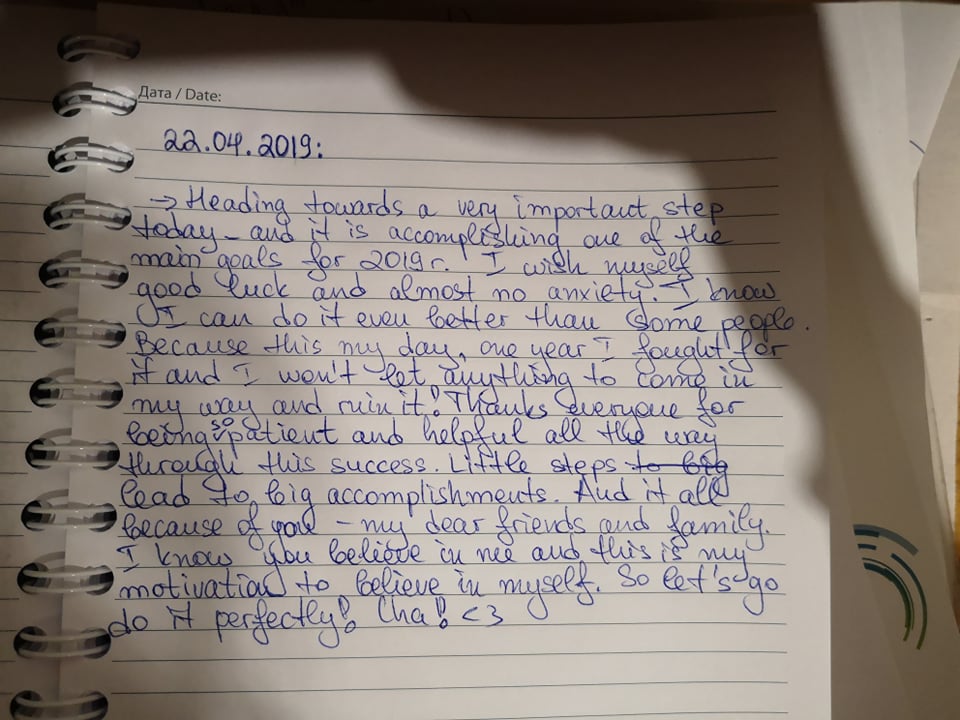 Дата / Date:
22.04.2019:
→ Heading towards a very important step
today - and it is accomplishing one of the
main goals for 2019 г. I wish myself
good luck and almost no anxiety. I know
I can do it even better than some people.
Because this my day, one year I fought for
it and I won't let anything to come in
my way and ruin it! Thanks everyone for
being so patient and helpful all the way
through this success. Little steps to big
lead to big accomplishments. And it all
because of you - my dear friends and family.
I know you believe in me and this is my
motivation to believe in myself. So let's go
do it perfectly! Cha! <3